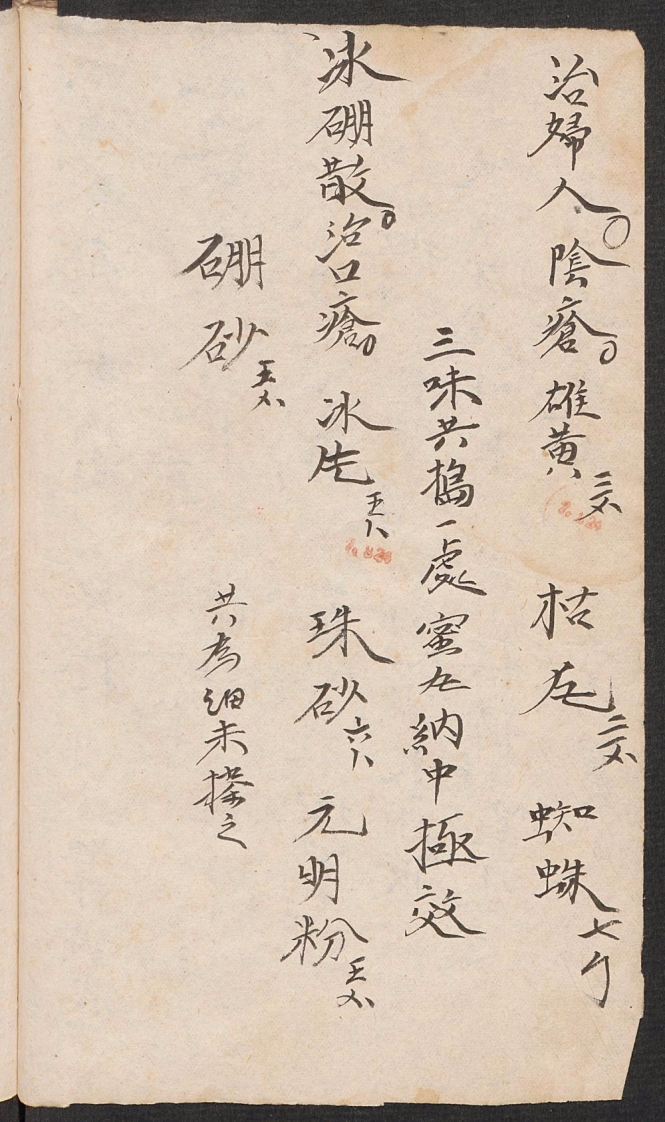 治婦人陰瘡 雄黃二文 枯凡二文 蜘蛛七个
三味共搗一處蜜丸納中極效
冰硼散治口瘡 冰片五卜 珠砂六卜 元明粉五文
硼砂五文
共為細末搽之